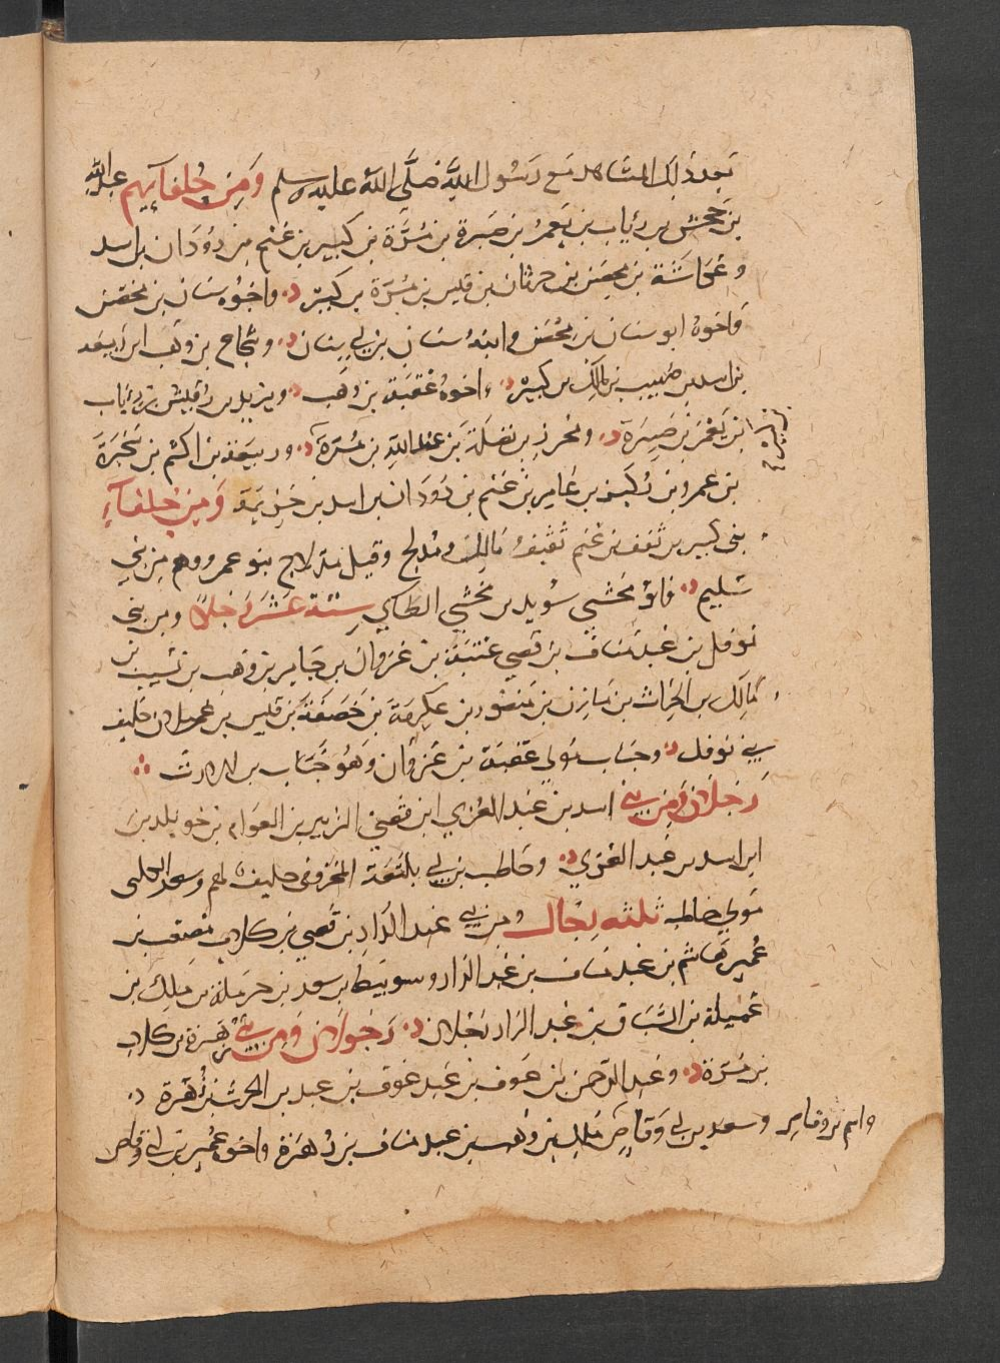 بعد ذلك المشاهد مع رسول الله صلى الله عليه وسلم ومن حلفايهم عبد الله
بن جحش بن رئاب بن يعمر بن صبرة بن مرة بن كبير بن غنم بن دودان بن اسد
وعكاشة بن محصن بن حرثان بن قيس بن مرة بن كبير واخوه سنان بن محصن
واخوه ابو سنان بن محصن وابنه سنان بن ابي سنان وشجاع بن وهب ابن ربيعه
بن اسد بن صهيب بن مالك بن كبير واخوه عقبة بن وهب ويزيد بن رقيش بن رئاب
بن يعمر بن صبرة ومحرز بن نضلة بن عبد الله بن مرة وربيعة بن اكثم بن سخبرة
بن عمرو بن بكير بن عامر بن غنم بن دودان بن اسد بن خزيمة ومن حلفآء
بنى كبير بن غنم ثقيف مالك ومدلج وقيل مدلاج بنو عمرو وهم من بني
سليم وابو مخشي سويد بن مخشي الطاي ستة عشر رجلا ومن بنى
نوفل بن عبد مناف بن قصي عتبة بن غزوان بن جابر بن وهب بن نسيب بن
مالك بن الحارث بن مازن بن منصور بن عكرمة بن خصفة بن قيس بن عيلان حليف
بني نوفل وخباب مولى عتبة بن غزوان وهو خباب
رجلان ومن بني اسد بن عبد العزي ابن قصي الزبير بن العوام بن خويلد بن
ابن اسد بن عبد العزي وحاطب بن ابي بلتعة حليف لهم وسعد الكلبى
مولي حاطب ثلثه رجال ومن بني عبد الدار بن قصي بن كلاب مصعب بن
عمير هاشم بن عبد مناف بن عبد الدار وسويبط بن سعد بن حرملة بن ملك بن
عميلة بن السباق بن عبد الدار رجلان ومن بني زهرة بن كلاب
بن مرة وعبد الرحمن بن عوف بن عبد عوف بن عبد بن الحرث بن زهرة
وسعد بن ابي وقاص مالك بن وهب بن عبد مناف بن زهرة واخوه عمير بن ابي وقاص